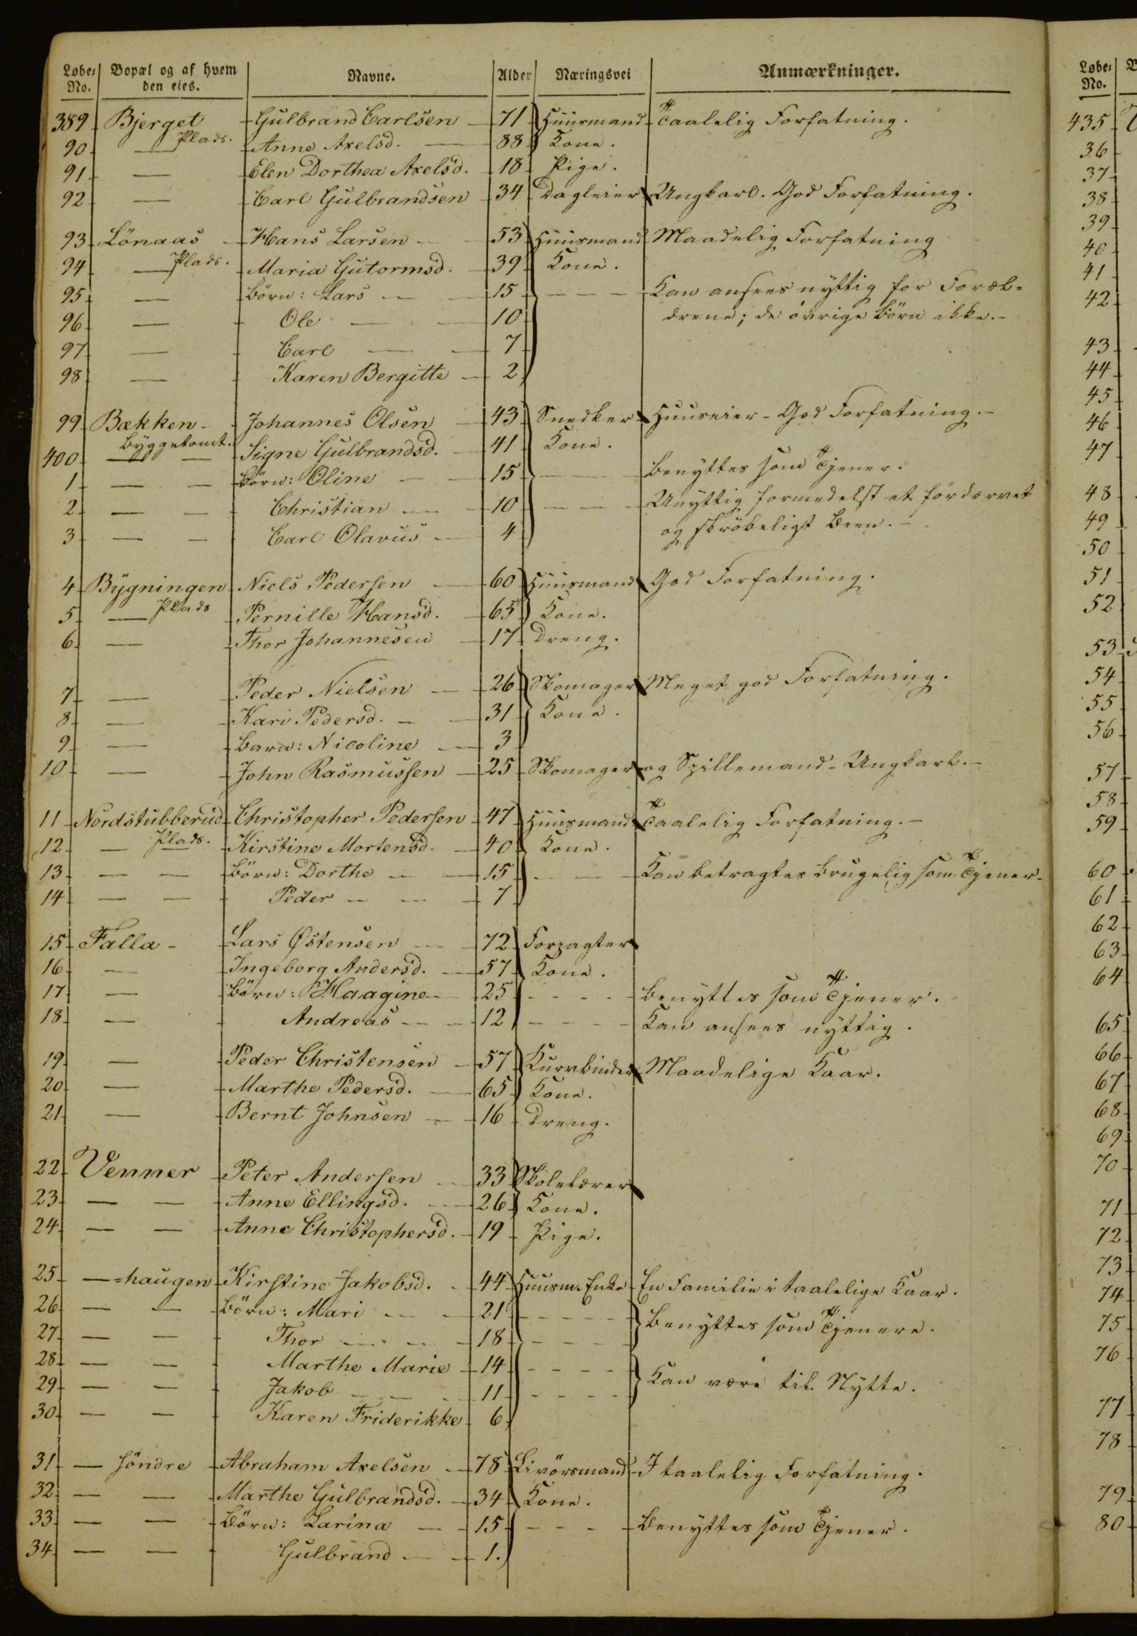 Løbe= No. Bopæl og af hvem den eies. Navne. Alder Næringsvei Anmærkninger.
389 Bjerget Gulbrand Carlsen 71 Huusmand Taalelig Forfatning.
90 — Plads. Anne Axelsd. 88 Kone.
91 — Elen Dorthea Axelsd. 18 Pige.
92 — Carl Gulbrandsen 34 Dagleier Ungkarl. God Forfatning.
93 Lönaas Hans Larsen 53 Huusmand Maadelig Forfatning
94 — Plads. Maria Gutormsd. 39 Kone.
95 — Börn: Lars 15 — Kan ansees nyttig for Foræl-
96 — Ole 10 drene; de övrige Börn ikke.
97 — Carl 7
98 — Karen Bergitte 2
99 Bækken- Johannes Olsen 43 Snedker Huuseier- God Forfatning.
400 — Byggetomt. Signe Gulbrandsd. 41 Kone.
1 — Börn: Oline 15 — Benyttes som Tjener.
2 — Christian 10 — Unyttig formedelst et fordærvet
3 — Carl Olavus 4 og skröbeligt Been.
4 Bygningen Niels Pedersen 60 Huusmand God Forfatning.
5 — Plads Pernille Hansd. 65 Kone.
6 — Thor Johannesen 17 Dreng.
7 — Peder Nielsen 26 Skomager Meget god Forfatning.
8 — Kari Pedersd. 31 Kone.
9 — Barn: Nicoline 3
10 — John Rasmussen 25 Skomager og Spillemand- Ungkarl.
11 Nordstubberud Christopher Pedersen 47 Huusmand Taalelig Forfatning.
12 — Plads. Kirstine Mortensd. 40 Kone.
13 — Börn: Dorthe 15 — Kan betragtes brugelig som Tjener.
14 — Peder 7
15 Falla- Lars Østensen 72 Forpagter
16 — Ingeborg Andersd. 57 Kone.
17 — Börn: Haagine 25 — Benyttes som Tjener.
18 — Andreas 12 — Kan ansees nyttig.
19 — Peder Christensen 57 Kurvbinder Maadelige Kaar.
20 — Marthe Pedersd. 65 Kone.
21 — Bernt Johnsen 16 Dreng.
22 Venner Peter Andersen 33 Skolelærer
23 — Anne Ellingsd. 26 Kone.
24 — Anne Christophersd. 19 Pige.
25 — =haugen Kirstine Jakobsd. 44 Huusm. Enke En Familie i taalelige Kaar.
26 — Börn: Mari 21 — Benyttes som Tjenere.
27 — Thor 18 —
28 — Marthe Marie 14 — Kan være til Nytte.
29 — Jakob 11 —
30 — Karen Friderikke 6
31 — söndre Abraham Axelsen 78 Livörsmand I taalelig Forfatning.
32 — Marthe Gulbrandsd. 34 Kone.
33 — Börn: Larina 15 — Benyttes som Tjener.
34 — Gulbrand 1.
Løbe= No.
435
36
37
38
39
40
41
42
43
44
45
46
47
48
49
50
51
52
53
54
55
56
57
58
59
60
61
62
63
64
65
66
67
68
69
70
71
72
73
74
75
76
77
78
79
80